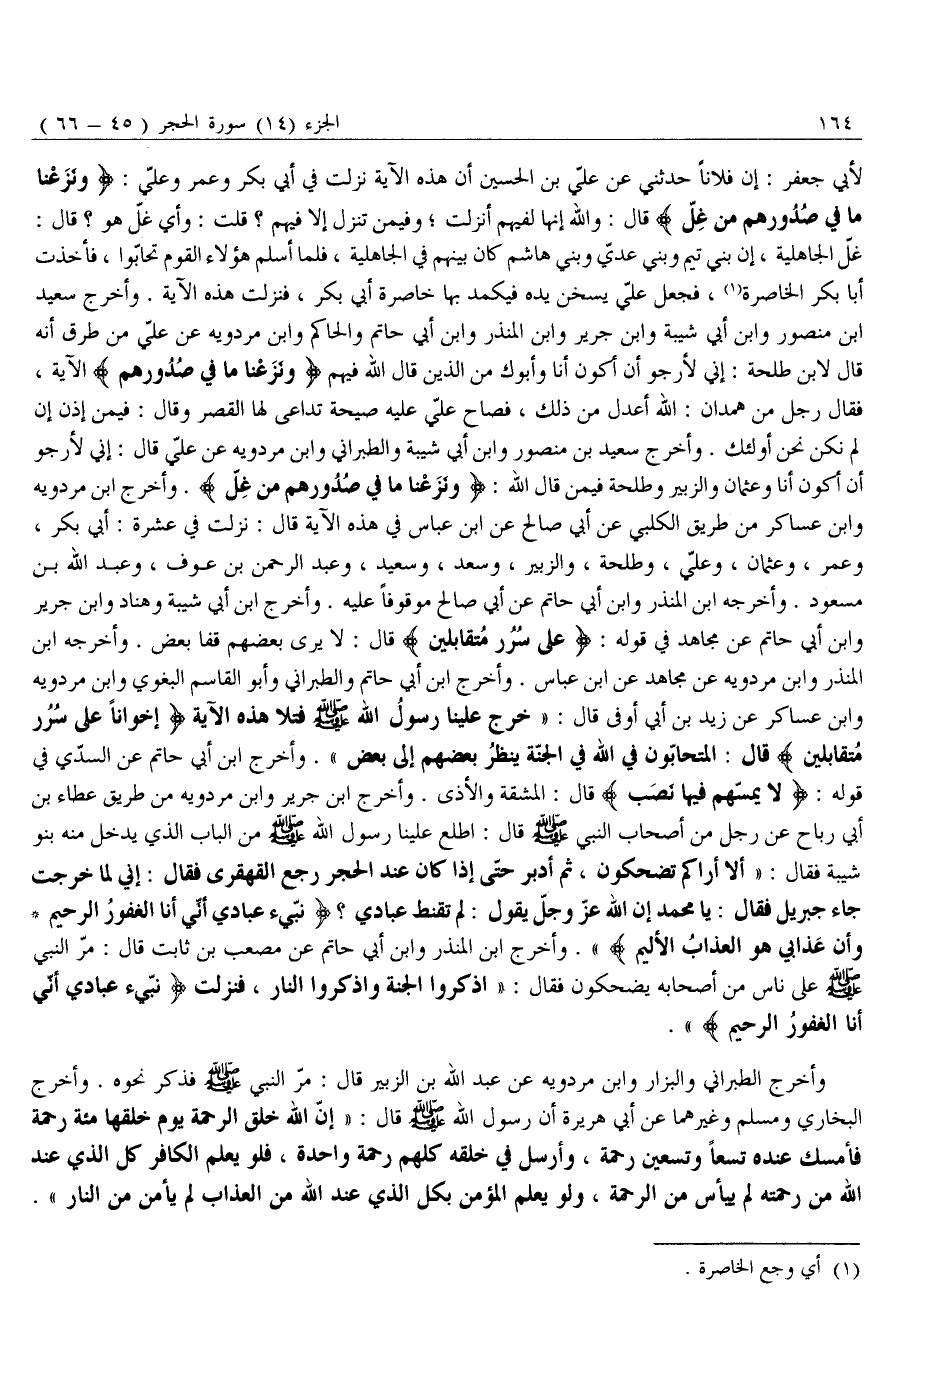 ١٦٤ الجزء (١٤) سورة الحجر ( ٤٥ – ٦٦ )
لأبي جعفر : إن فلاناً حدثني عن عليّ بن الحسين أن هذه الآية نزلت في أبي بكر وعمر وعليّ : ﴿ ونَزَعْنا
ما في صُدُورهم من غِلّ ﴾ قال : والله إنها لفيهم أنزلت ؛ وفيمن تنزل إلا فيهم ؟ قلت : وأي غلّ هو ؟ قال :
غلّ الجاهلية ، إن بني تيم وبني عديّ وبني هاشم كان بينهم في الجاهلية ، فلما أسلم هؤلاء القوم تحابّوا ، فأخذت
أبا بكر الخاصرة(١) ، فجعل عليّ يسخن يده فيكمد بها خاصرة أبي بكر ، فنزلت هذه الآية . وأخرج سعيد
ابن منصور وابن أبي شيبة وابن جرير وابن المنذر وابن أبي حاتم والحاكم وابن مردويه عن عليّ من طرق أنه
قال لابن طلحة : إني لأرجو أن أكون أنا وأبوك من الذين قال الله فيهم ﴿ ونَزَعْنا ما في صُدُورهم ﴾ الآية ،
فقال رجل من همدان : الله أعدل من ذلك ، فصاح عليّ عليه صيحة تداعى لها القصر وقال : فيمن إذن إن
لم نكن نحن أولئك . وأخرج سعيد بن منصور وابن أبي شيبة والطبراني وابن مردويه عن عليّ قال : إني لأرجو
أن أكون أنا وعثمان والزبير وطلحة فيمن قال الله : ﴿ ونَزَعْنا ما في صُدُورهم من غِلّ ﴾ . وأخرج ابن مردويه
وابن عساكر من طريق الكلبي عن أبي صالح عن ابن عباس في هذه الآية قال : نزلت في عشرة : أبي بكر ،
وعمر ، وعثمان ، وعليّ ، وطلحة ، والزبير ، وسعد ، وسعيد ، وعبد الرحمن بن عوف ، وعبد الله بن
مسعود . وأخرجه ابن المنذر وابن أبي حاتم عن أبي صالح موقوفاً عليه . وأخرج ابن أبي شيبة وهناد وابن جرير
وابن أبي حاتم عن مجاهد في قوله : ﴿ على سُرُر مُتقابلين ﴾ قال : لا يرى بعضهم قفا بعض . وأخرجه ابن
المنذر وابن مردويه عن مجاهد عن ابن عباس . وأخرج ابن أبي حاتم والطبراني وأبو القاسم البغوي وابن مردويه
وابن عساكر عن زيد بن أبي أوفى قال : « خرج علينا رسولُ الله ﷺ فتلا هذه الآية ﴿ إخواناً على سُرُر
مُتقابلين ﴾ قال : المتحابّون في الله في الجنّة ينظرُ بعضهم إلى بعض » . وأخرج ابن أبي حاتم عن السدّي في
قوله : ﴿ لا يمسّهم فيها نَصَب ﴾ قال : المشقة والأذى . وأخرج ابن جرير وابن مردويه من طريق عطاء بن
أبي رباح عن رجل من أصحاب النبي ﷺ قال : اطلع علينا رسول الله ﷺ من الباب الذي يدخل منه بنو
شيبة فقال : « ألا أراكم تضحكون ، ثم أدبر حتّى إذا كان عند الحجر رجع القهقرى فقال : إني لما خرجت
جاء جبريل فقال : يا محمد إن الله عزّ وجلّ يقول : لم تقنط عبادي ؟ ﴿ نبّيء عبادي أنّي أنا الغفورُ الرحيم *
وأن عَذابي هو العذابُ الأليم ﴾ » . وأخرج ابن المنذر وابن أبي حاتم عن مصعب بن ثابت قال : مرّ النبي
ﷺ على ناس من أصحابه يضحكون فقال : « اذكروا الجنة واذكروا النار ، فنزلت ﴿ نبّيء عبادي أنّي
أنا الغفورُ الرحيم ﴾ » .
وأخرج الطبراني والبزار وابن مردويه عن عبد الله بن الزبير قال : مرّ النبي ﷺ فذكر نحوه . وأخرج
البخاري ومسلم وغيرهما عن أبي هريرة أن رسول الله ﷺ قال : « إنّ الله خلق الرحمة يوم خلقها مئة رحمة
فأمسك عنده تسعاً وتسعين رحمة ، وأرسل في خلقه كلهم رحمة واحدة ، فلو يعلم الكافر كل الذي عند
الله من رحمته لم ييأس من الرحمة ، ولو يعلم المؤمن بكل الذي عند الله من العذاب لم يأمن من النار » .
(١) أي وجع الخاصرة .